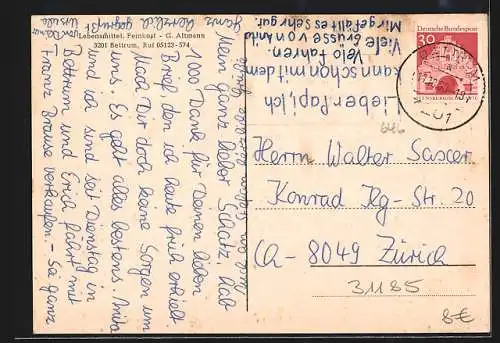 Lebensmittel, Feinkost - G. Altmann
3201 Bettrum, Ruf 05123-574
Mein ganz lieber Schatz, hab
1000 Dank für Deinen lieben
Brief, den ich heute früh erhielt.
Mach Dir doch keine Sorgen um
uns! Es geht alles bestens. Anita
und ich sind seit Dienstag in
Bettrum und Erich fährt mit
Franz Brause verkaufen - Sei ganz
ganz herzlich gegrüßt
von Deiner
Lieber Papi, Ich
kann schon mit dem
Velo fahren.
Viele Grüsse von Anita
Mir gefällt es sehr gut.
Deutsche Bundespost
30
Herrn Walter Sascer
Konrad Ilg-Str. 20
CH-8049 Zürich
31185
8€